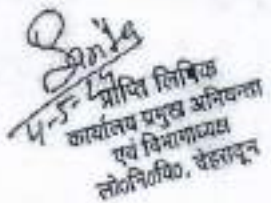 4-5-24
प्राप्ति लिपिक
कार्यालय प्रमुख अभियन्ता
एवं विभागाध्यक्ष
लो०नि०वि०, देहरादून